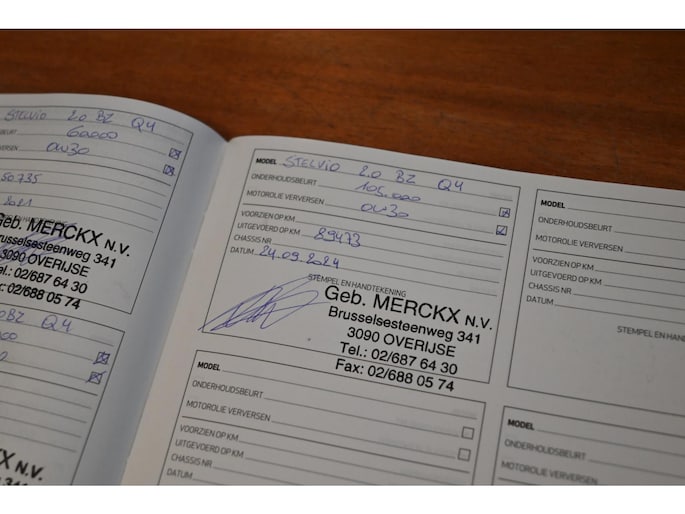 STELVIO 2.0 BZ Q4
60000
0W30
50.735
Geb. MERCKX N.V.
Brusselsesteenweg 341
3090 OVERIJSE
Tel.: 02/687 64 30
Fax: 02/688 05 74
BZ Q4
MODEL STELVIO 2.0 BZ Q4
ONDERHOUDSBEURT 105.000
MOTOROLIE VERVERSEN 0W30
VOORZIEN OP KM
UITGEVOERD OP KM 89473
CHASSIS NR
DATUM 24.09.2024
STEMPEL EN HANDTEKENING
Geb. MERCKX N.V.
Brusselsesteenweg 341
3090 OVERIJSE
Tel.: 02/687 64 30
Fax: 02/688 05 74
MODEL
ONDERHOUDSBEURT
MOTOROLIE VERVERSEN
VOORZIEN OP KM
UITGEVOERD OP KM
CHASSIS NR
DATUM
MODEL
ONDERHOUDSBEURT
MOTOROLIE VERVERSEN
VOORZIEN OP KM
UITGEVOERD OP KM
CHASSIS NR
DATUM
STEMPEL EN
MODEL
ONDERHOUDSBEURT
MOTOROLIE VERVERSEN
VOORZIEN OP KM